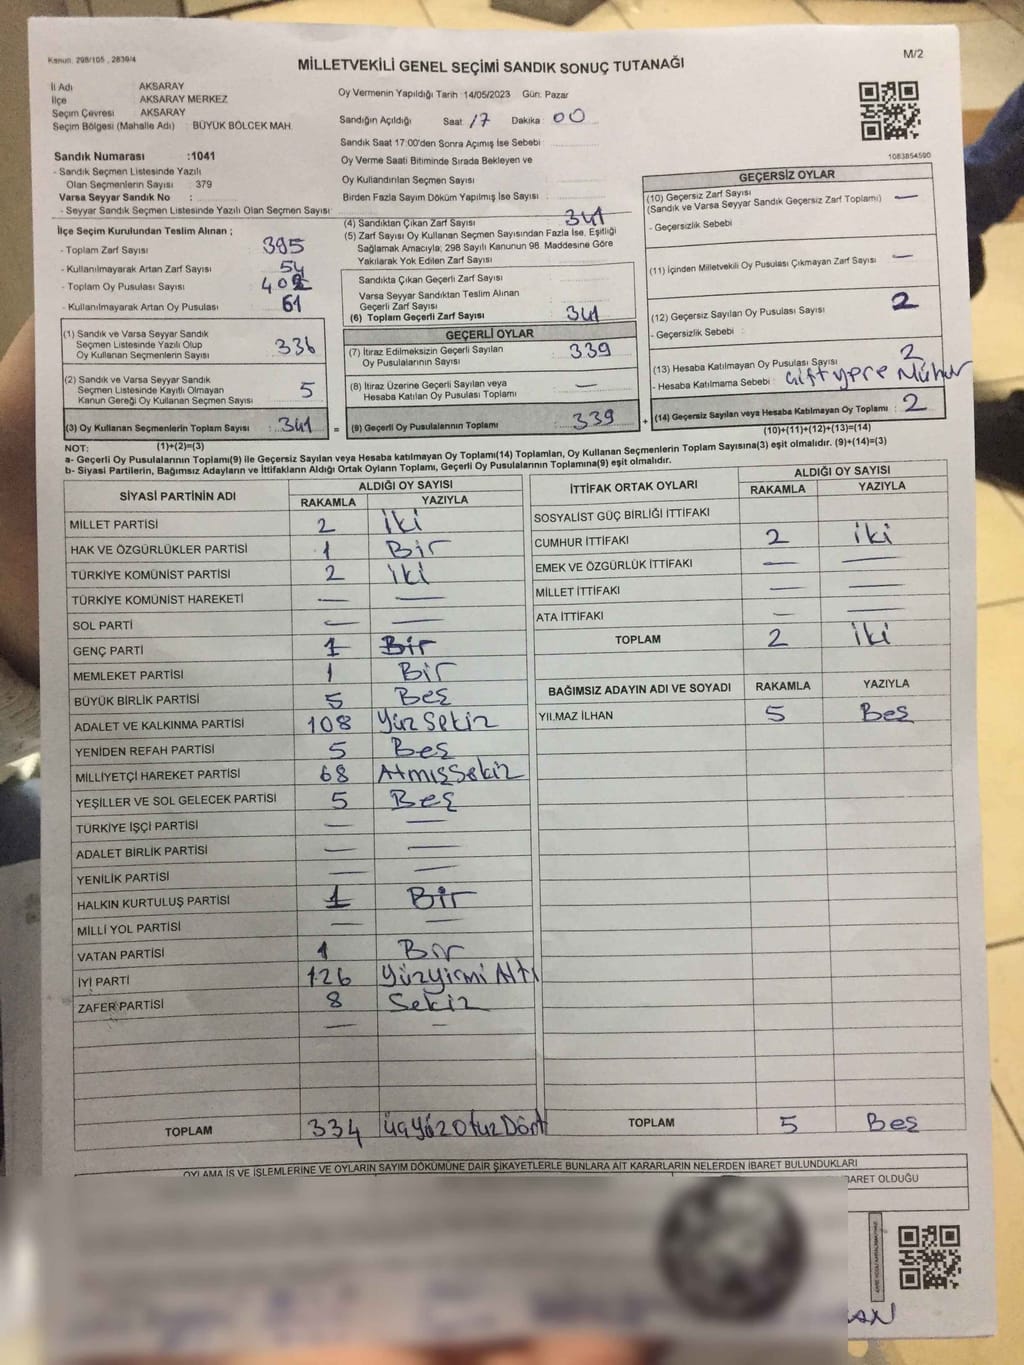 Kanun: 298/105, 2839/4
MİLLETVEKİLİ GENEL SEÇİMİ SANDIK SONUÇ TUTANAĞI
M/2
İl Adı AKSARAY
İlçe AKSARAY MERKEZ
Seçim Çevresi AKSARAY
Seçim Bölgesi (Mahalle Adı) : BÜYÜK BÖLCEK MAH.
Sandık Numarası :1041
- Sandık Seçmen Listesinde Yazılı
Olan Seçmenlerin Sayısı : 379
Varsa Seyyar Sandık No :
- Seyyar Sandık Seçmen Listesinde Yazılı Olan Seçmen Sayısı
Oy Vermenin Yapıldığı Tarih 14/05/2023 Gün: Pazar
Sandığın Açıldığı Saat 17 Dakika 00
Sandık Saat 17:00'den Sonra Açılmış İse Sebebi
Oy Verme Saati Bitiminde Sırada Bekleyen ve
Oy Kullandırılan Seçmen Sayısı
Birden Fazla Sayım Döküm Yapılmış İse Sayısı :
1083854590
İlçe Seçim Kurulundan Teslim Alınan ;
- Toplam Zarf Sayısı 395
- Kullanılmayarak Artan Zarf Sayısı 54
- Toplam Oy Pusulası Sayısı 402
- Kullanılmayarak Artan Oy Pusulası 61
(1) Sandık ve Varsa Seyyar Sandık
Seçmen Listesinde Yazılı Olup
Oy Kullanan Seçmenlerin Sayısı 336
(2) Sandık ve Varsa Seyyar Sandık
Seçmen Listesinde Kayıtlı Olmayan
Kanun Gereği Oy Kullanan Seçmen Sayısı 5
(3) Oy Kullanan Seçmenlerin Toplam Sayısı : 341 =
(4) Sandıktan Çıkan Zarf Sayısı 341
(5) Zarf Sayısı Oy Kullanan Seçmen Sayısından Fazla İse, Eşitliği
Sağlamak Amacıyla; 298 Sayılı Kanunun 98. Maddesine Göre
Yakılarak Yok Edilen Zarf Sayısı
Sandıkta Çıkan Geçerli Zarf Sayısı
Varsa Seyyar Sandıktan Teslim Alınan
Geçerli Zarf Sayısı
(6) Toplam Geçerli Zarf Sayısı 341
GEÇERLİ OYLAR
(7) İtiraz Edilmeksizin Geçerli Sayılan
Oy Pusulalarının Sayısı 339
(8) İtiraz Üzerine Geçerli Sayılan veya
Hesaba Katılan Oy Pusulası Toplamı —
(9) Geçerli Oy Pusulalarının Toplamı 339 +
GEÇERSİZ OYLAR
(10) Geçersiz Zarf Sayısı —
(Sandık ve Varsa Seyyar Sandık Geçersiz Zarf Toplamı)
- Geçersizlik Sebebi
(11) İçinden Milletvekili Oy Pusulası Çıkmayan Zarf Sayısı —
(12) Geçersiz Sayılan Oy Pusulası Sayısı 2
- Geçersizlik Sebebi :
(13) Hesaba Katılmayan Oy Pusulası Sayısı 2
- Hesaba Katılmama Sebebi : Mühür
(14) Geçersiz Sayılan veya Hesaba Katılmayan Oy Toplamı : 2
NOT: (1)+(2)=(3)
(10)+(11)+(12)+(13)=(14)
a- Geçerli Oy Pusulalarının Toplamı(9) ile Geçersiz Sayılan veya Hesaba katılmayan Oy Toplamı(14) Toplamları, Oy Kullanan Seçmenlerin Toplam Sayısına(3) eşit olmalıdır. (9)+(14)=(3)
b- Siyasi Partilerin, Bağımsız Adayların ve İttifakların Aldığı Ortak Oyların Toplamı, Geçerli Oy Pusulalarının Toplamına(9) eşit olmalıdır.
SİYASİ PARTİNİN ADI ALDIĞI OY SAYISI
RAKAMLA YAZIYLA
MİLLET PARTİSİ 2 iki
HAK VE ÖZGÜRLÜKLER PARTİSİ 1 Bir
TÜRKİYE KOMÜNİST PARTİSİ 2 iki
TÜRKİYE KOMÜNİST HAREKETİ — —
SOL PARTİ — —
GENÇ PARTİ 1 Bir
MEMLEKET PARTİSİ 1 Bir
BÜYÜK BİRLİK PARTİSİ 5 Beş
ADALET VE KALKINMA PARTİSİ 108 Yüz Sekiz
YENİDEN REFAH PARTİSİ 5 Beş
MİLLİYETÇİ HAREKET PARTİSİ 68 AtmışSekiz
YEŞİLLER VE SOL GELECEK PARTİSİ 5 Beş
TÜRKİYE İŞÇİ PARTİSİ — —
ADALET BİRLİK PARTİSİ — —
YENİLİK PARTİSİ — —
HALKIN KURTULUŞ PARTİSİ 1 Bir
MİLLİ YOL PARTİSİ — —
VATAN PARTİSİ 1 Bir
İYİ PARTİ 126 Yüzyirmi Altı
ZAFER PARTİSİ 8 Sekiz
— —
TOPLAM 334 üçYüzOtuzDört
İTTİFAK ORTAK OYLARI ALDIĞI OY SAYISI
RAKAMLA YAZIYLA
SOSYALİST GÜÇ BİRLİĞİ İTTİFAKI
CUMHUR İTTİFAKI 2 iki
EMEK VE ÖZGÜRLÜK İTTİFAKI — —
MİLLET İTTİFAKI — —
ATA İTTİFAKI — —
TOPLAM 2 iki
BAĞIMSIZ ADAYIN ADI VE SOYADI RAKAMLA YAZIYLA
YILMAZ İLHAN 5 Beş
TOPLAM 5 Beş
OYLAMA İŞ VE İŞLEMLERİNE VE OYLARIN SAYIM DÖKÜMÜNE DAİR ŞİKAYETLERLE BUNLARA AİT KARARLARIN NELERDEN İBARET BULUNDUKLARI
İBARET OLDUĞU